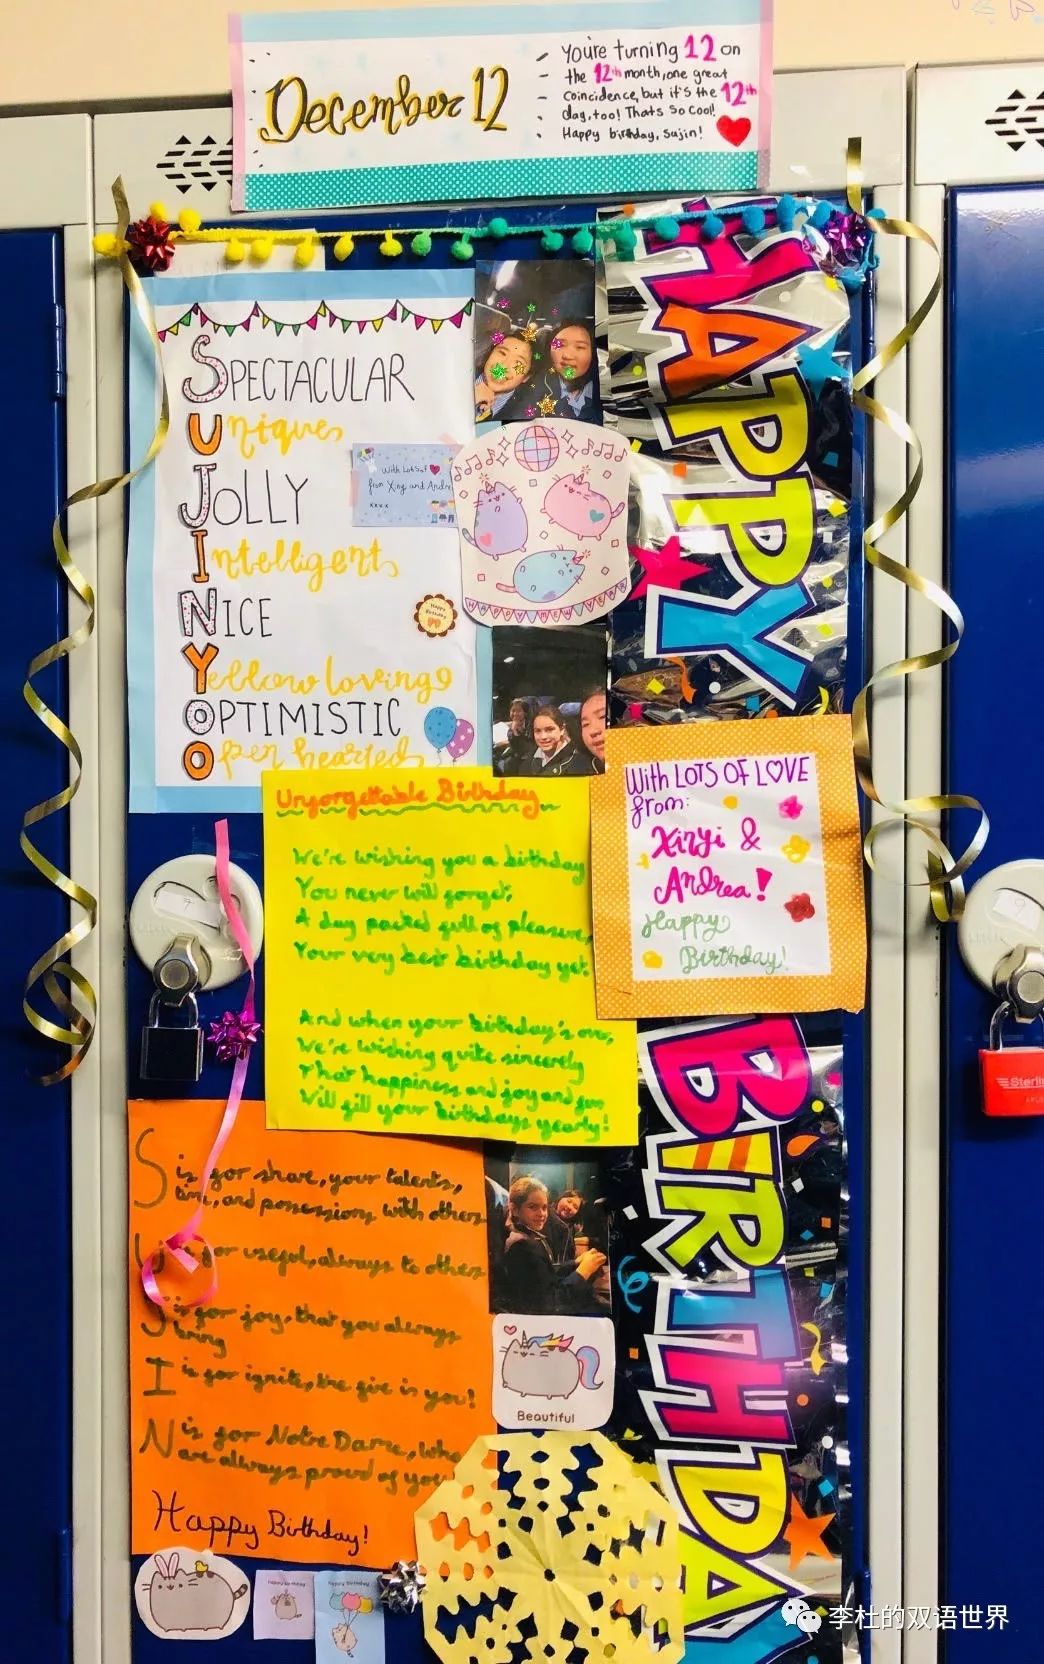 December 12
You're turning 12 on
the 12th month, one great
coincidence, but it's the 12th
day, too! Thats so cool!
Happy birthday, Sujin!
SPECTACULAR
Unique
JOLLY
Intelligent
NICE
Yellow loving
OPTIMISTIC
Open hearted
With Lots of
from Xinyi and Andrea
xxxx
Happy
Birthday
HAPPY NEW YEAR
HAPPY BIRTHDAY
With LOTS OF LOVE
from:
Xinyi &
Andrea!
Happy
Birthday!
Unforgettable Birthday
We're wishing you a birthday
You never will forget;
A day packed full of pleasure,
Your very best birthday yet.
And when your birthday's over,
We're wishing quite sincerely
That happiness and joy and fun
Will fill your birthdays yearly!
S is for share, your talents,
time, and possessions with others
U is for useful, always to others
J is for joy, that you always
bring
I is for ignite, the fire in you!
N is for Notre Dame, who
are always proud of you
Happy Birthday!
Beautiful
happy birthday
happy birthday
7
9
Sterling
李杜的双语世界